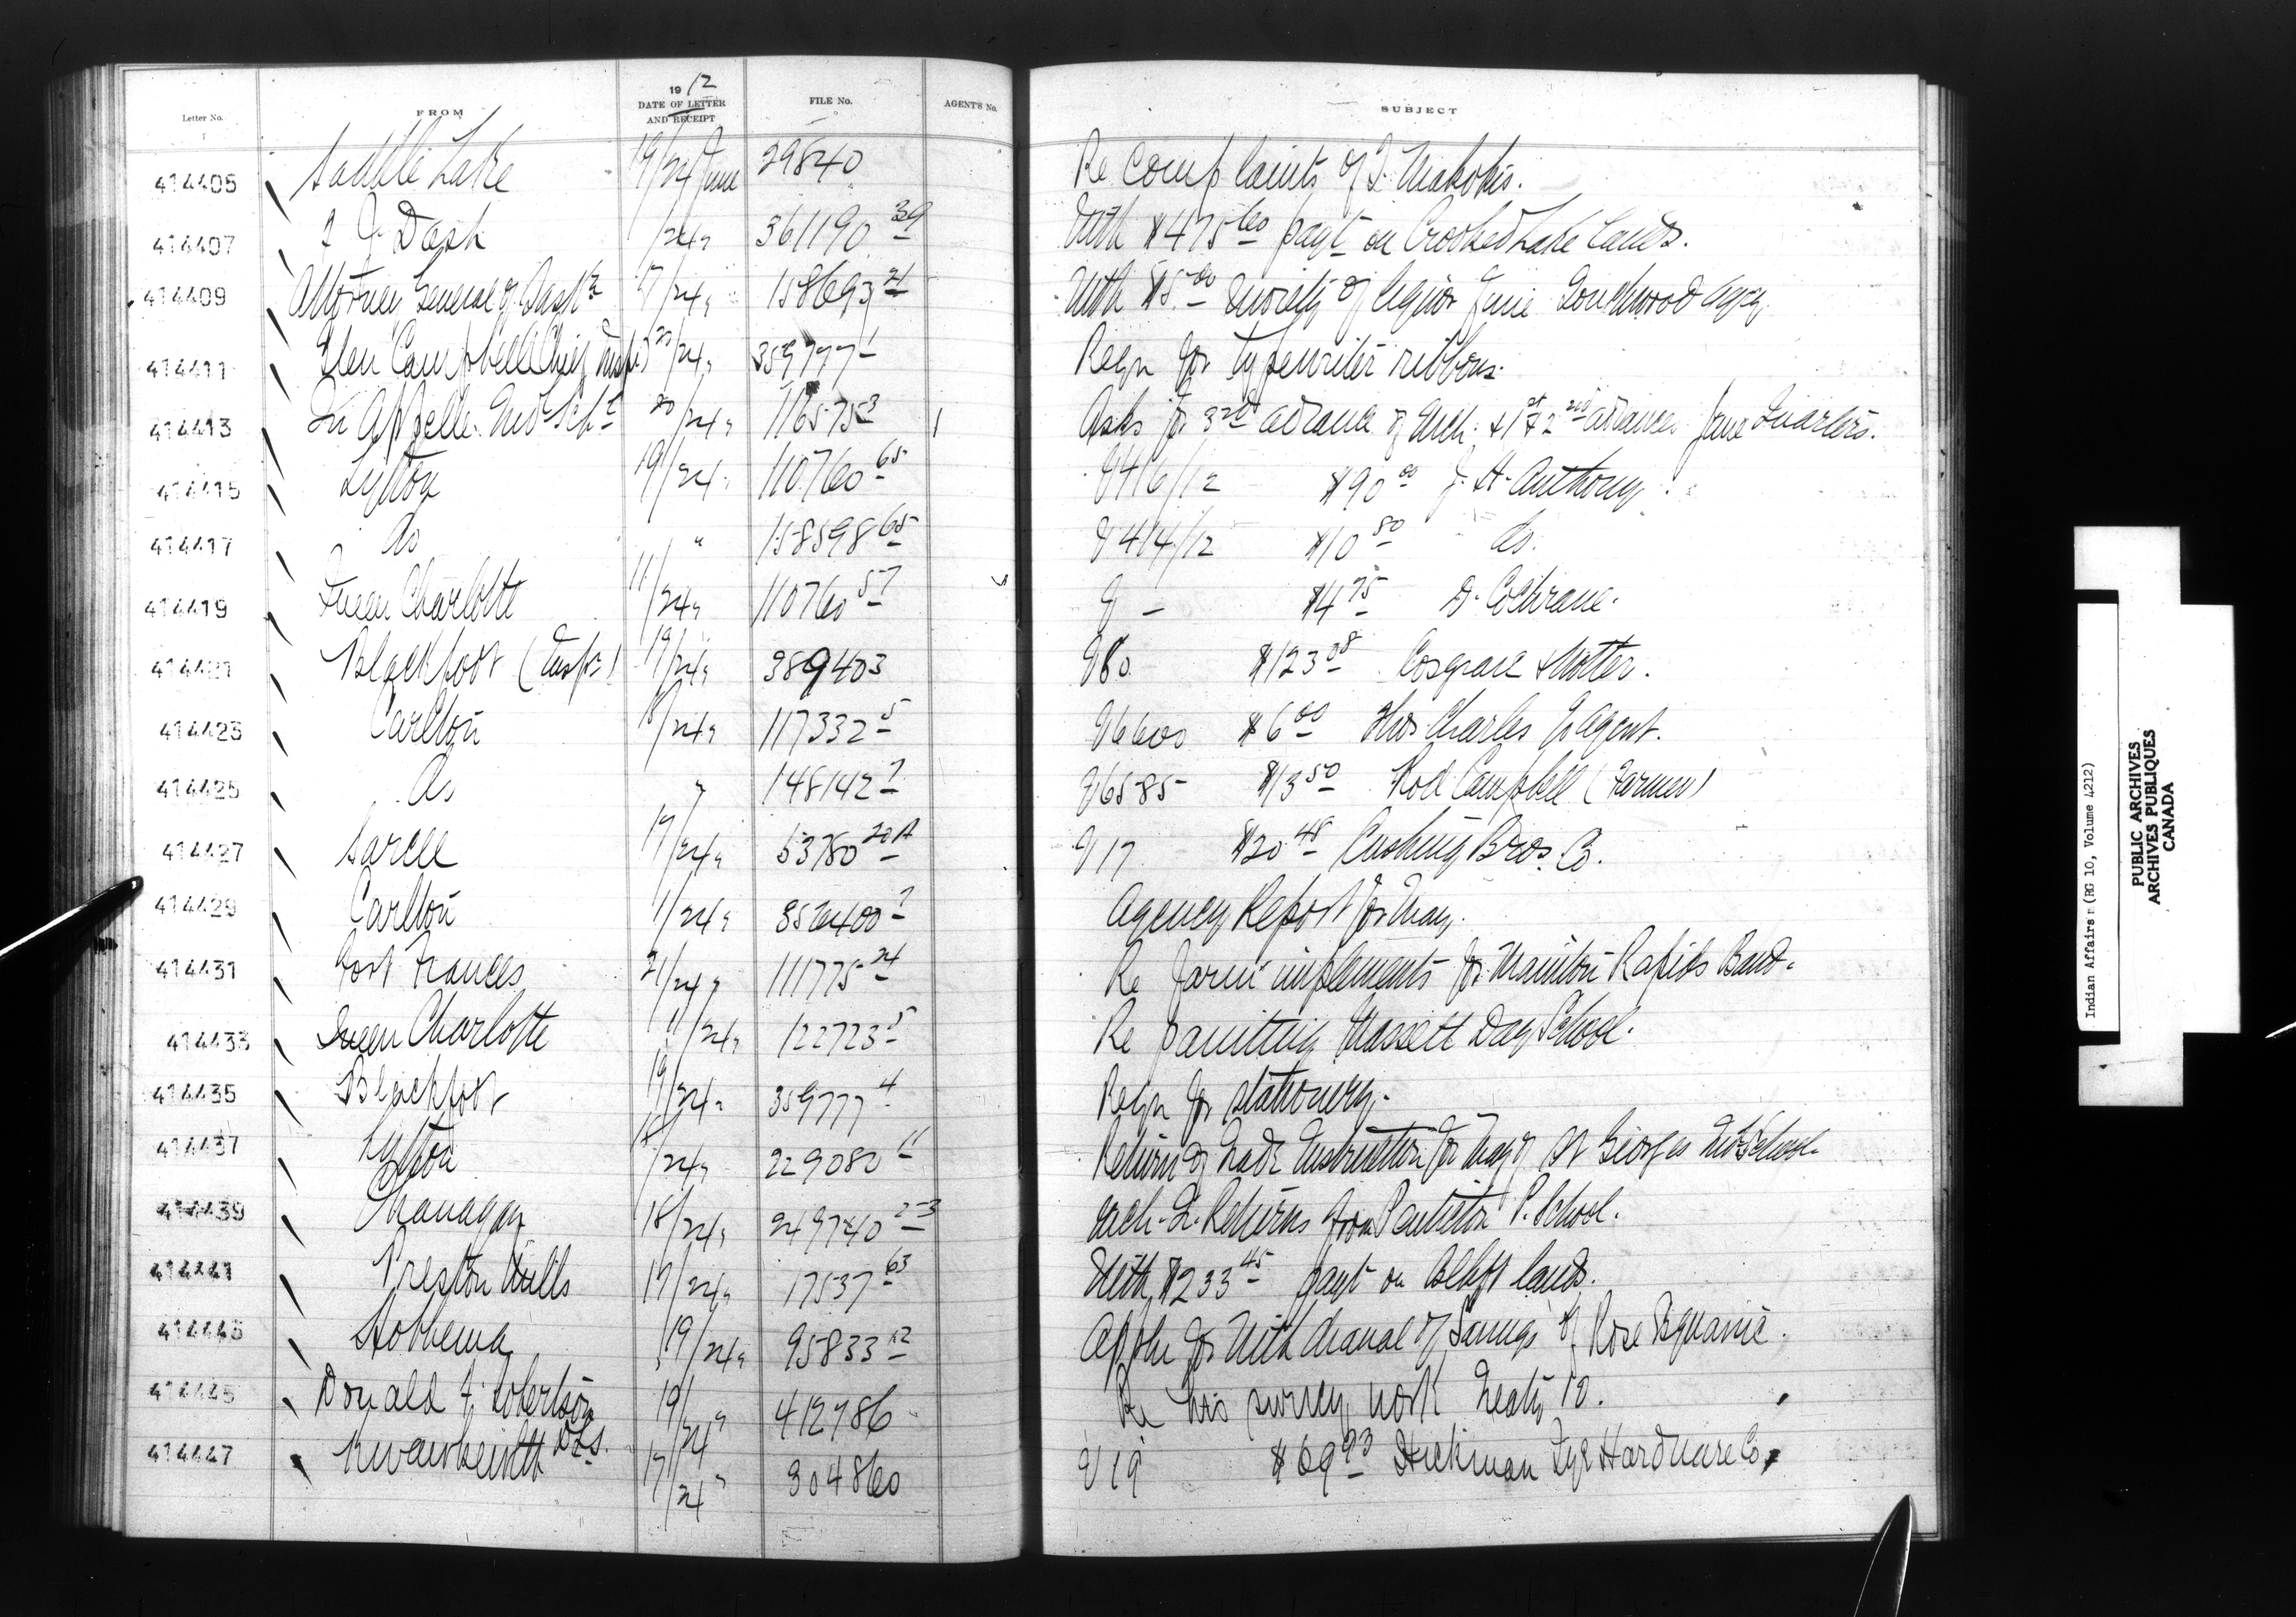 Letter No. FROM 1912 DATE OF LETTER AND RECEIPT FILE No. AGENT'S No. SUBJECT
414405 Saddle Lake 19/24 June 29840 Re complaints of J. Makokis.
414407 J J Dash /24 " 361190 39 With $475 60 payt on Crooked Lake Lands.
414409 Attorney General of Sask 17/24 " 158693 21 With $5.00 moiety of liquor fine Touchwood Agcy
414411 Glen Campbell Chief Insp 20/24 " 359777 1 Reqn for typewriter ribbons.
414413 Qu Appelle Ind Sch 20/24 " 116575 3 Asks for 3rd advance of Mch. & 1st & 2nd advances June Quarters.
414415 Lytton 19/24 " 110760 65 V416/12 $90 00 J. H. Anthony
414417 Do " 158598 65 V414/12 $10 80 Do.
414419 Queen Charlotte 11/24 " 110760 57 V — $4 75 D. Cochrane.
414421 Blackfoot (Insp) 19/24 " 389403 V80 $123 38 Cosgrave &
414423 Carlton 18/24 " 117332 5 V6600 $6 00 Thos Charles Agent.
414425 Do " 148142 7 V6585 $13 50 Rod Campbell (Farmer)
414427 Sarcee 17/24 " 53780 20A V17 $20 48 Cushing Bros. Co.
414429 Carlton /24 " 356400 7 Agency Report for May.
414431 Fort Frances 21/24 " 111775 24 Re farm implements for Manitou Rapids Band.
414433 Queen Charlotte 11/24 " 122723 5 Re painting Massett Day School.
414435 Blackfoot 19/24 " 359777 4 Reqn for stationery.
414437 Lytton 18/24 " 229080 11 Return of Trade Instruction for May of St Georges Ind School.
414439 Okanagan 18/24 " 249740 23 Mch. Q. Returns from Penticton P. School.
414441 Preston Mills 17/24 " 17537 63 With $233 45 payt on Blkft lands.
414443 Hobbema 19/24 " 95833 12 Appln for withdrawal of Savings of Rose
414445 Donald F. Robertson DLS. 19/24 " 412786 Re his survey work Treaty 10.
414447 17/24 " 304860 V19 $69 93 Hickman Tye Hardware Co
Indian Affairs (RG 10, Volume 4212)
PUBLIC ARCHIVES
ARCHIVES PUBLIQUES
CANADA